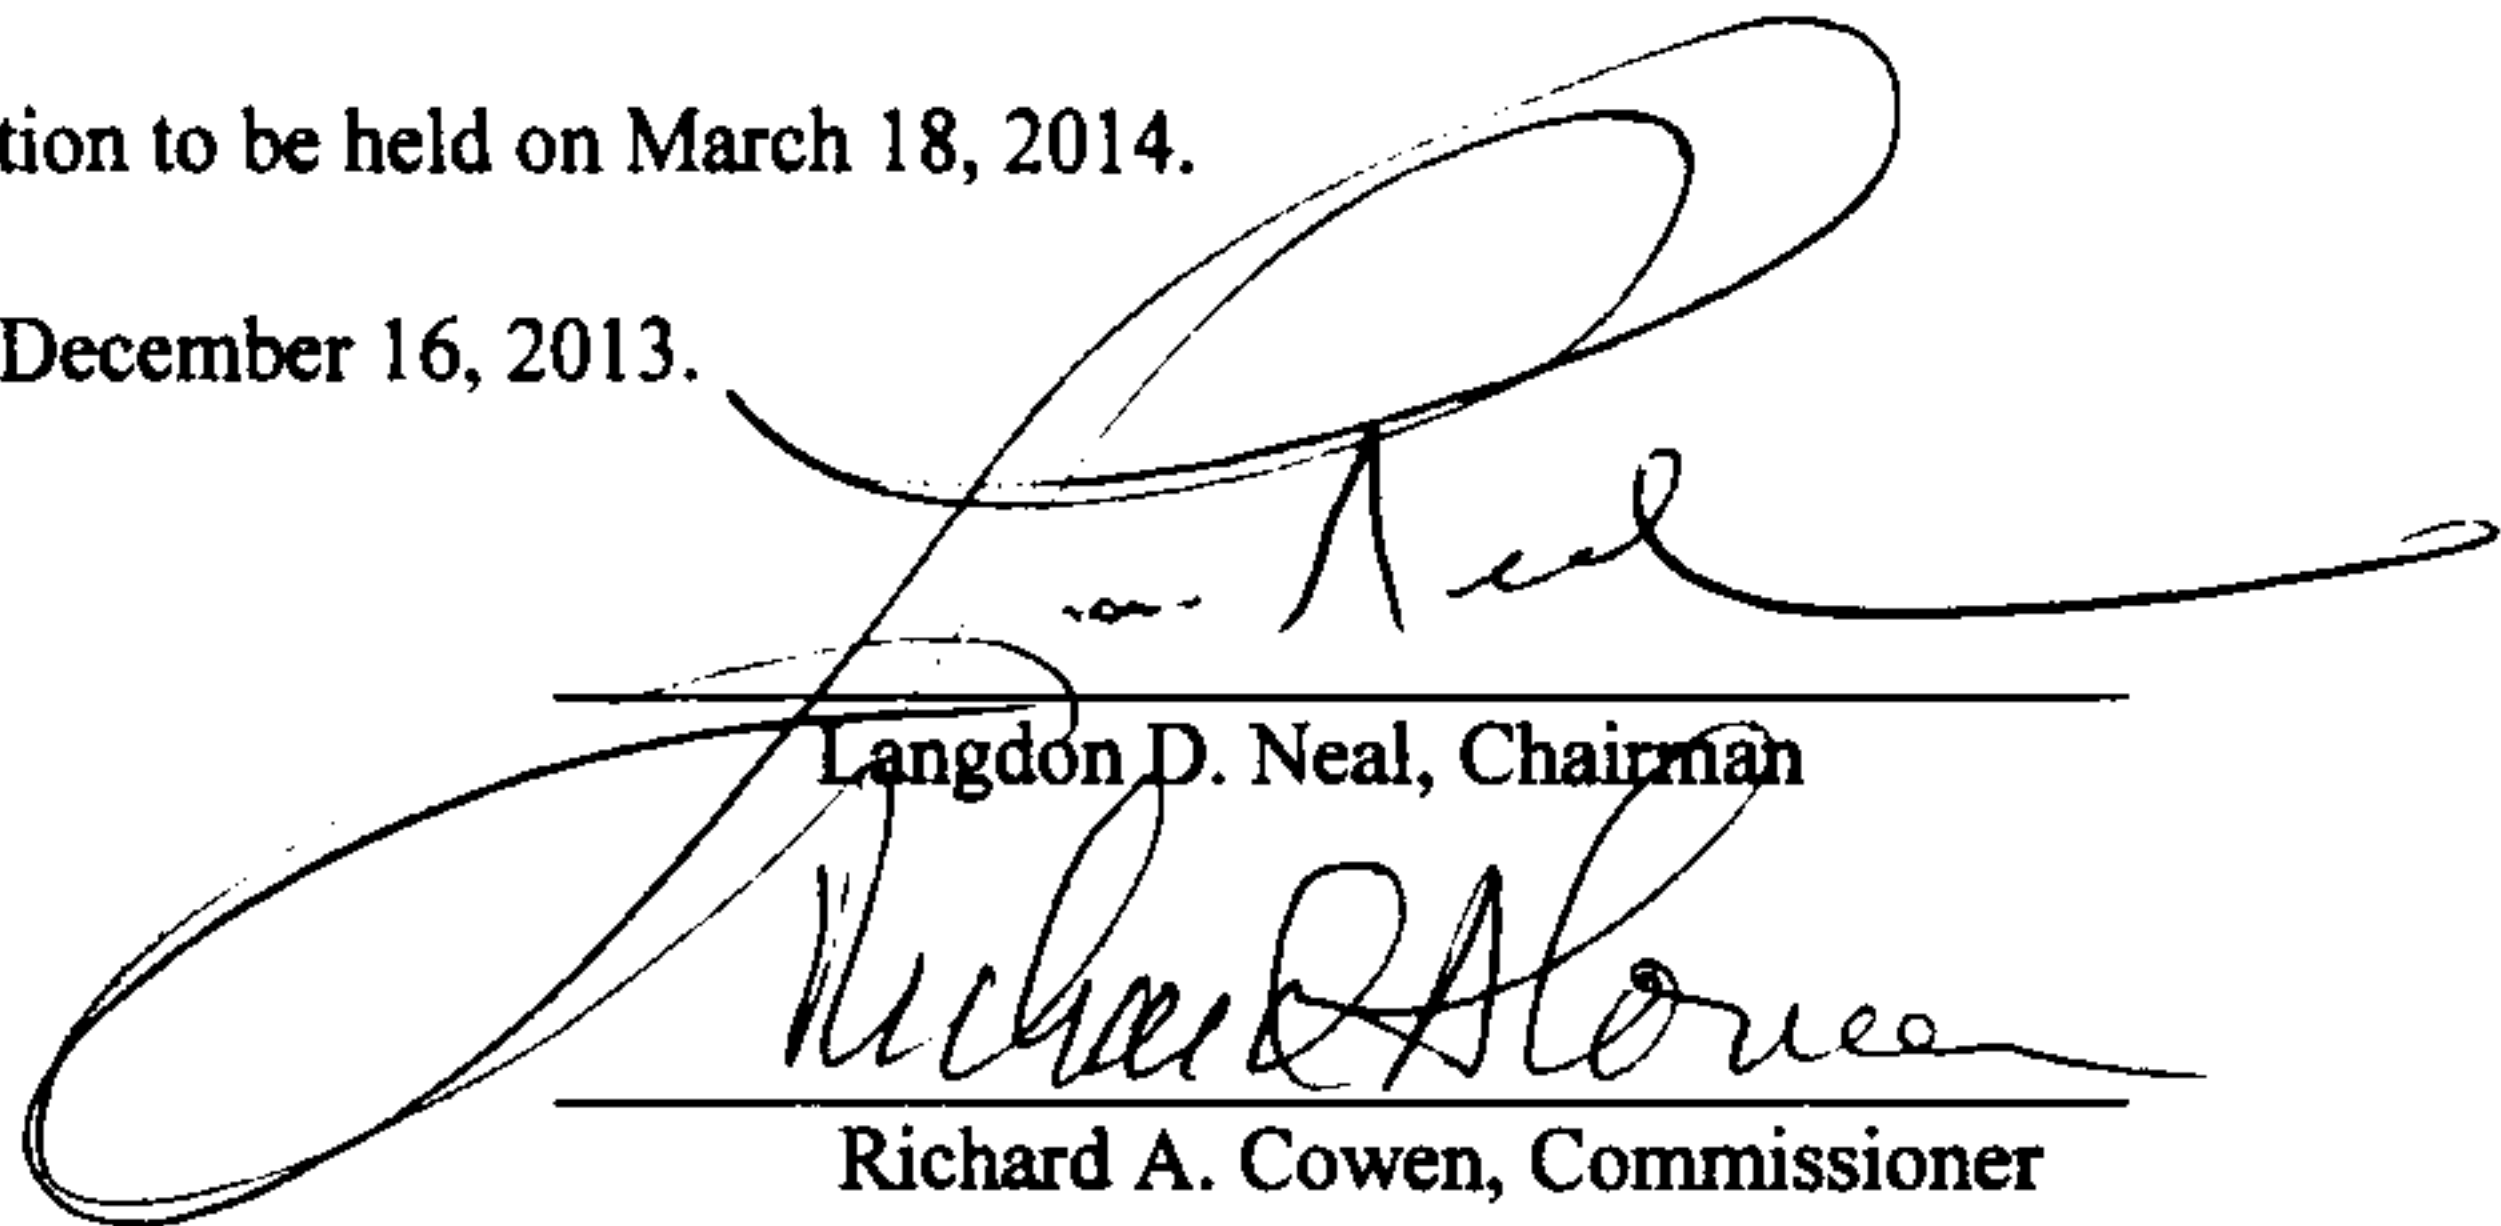 tion to be held on March 18, 2014.
December 16, 2013.
Langdon D. Neal, Chairman
Richard A. Cowen
Richard A. Cowen, Commissioner